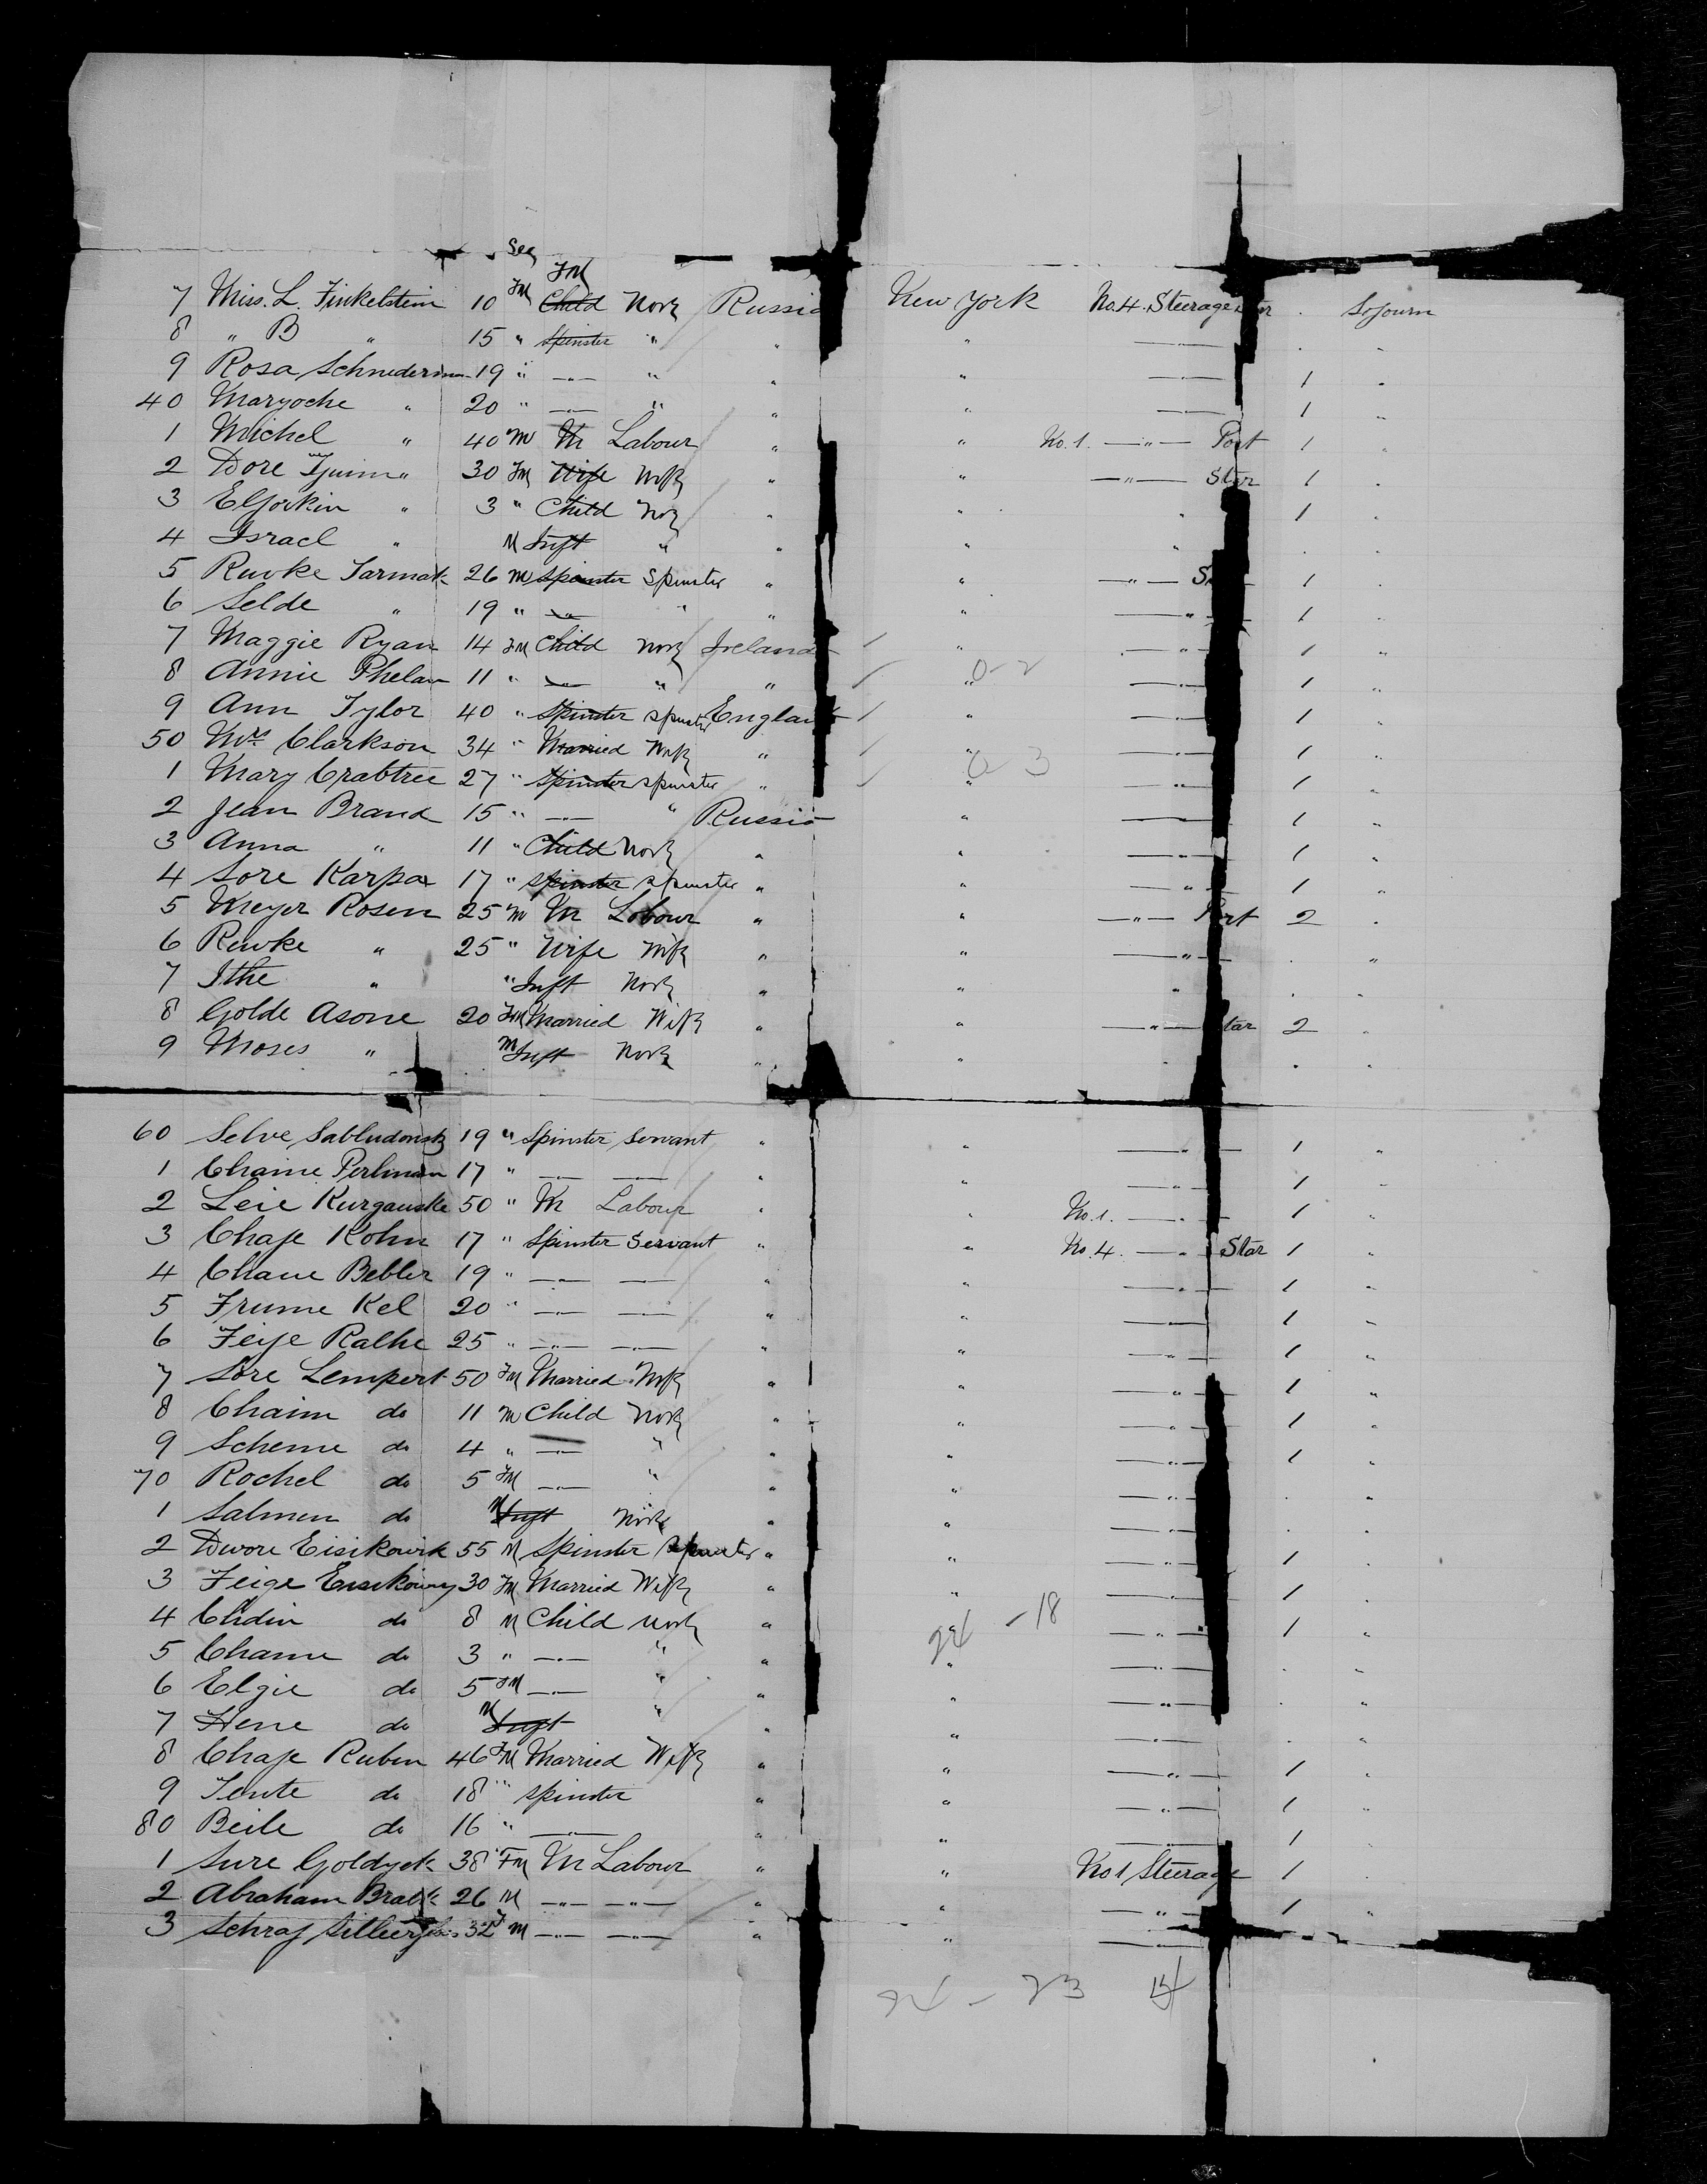 Sex
FM
7 Miss. L. Finkelstein 10 FM Child None Russia New York No. 4. Steerage Star . Sojourn
8 " B " 15 " Spinster " " " —"— . "
9 Rosa Schnederman 19 " —"— " " " —"— 1 "
40 Maryoche " 20 " —"— " " " —"— 1 "
1 Michel " 40 M M Labour " " No. 1. —"— Port 1 "
2 Dore " 30 FM Wife Wife " " —"— Star 1 "
3 " 3 " Child None " " " 1 "
4 Israel " M Inft " " " " . .
5 Ruvke Sarmak 26 M Spinster Spinster " " —"— 1 "
6 Selde " 19 " —"— " " " —"— 1 "
7 Maggie Ryan 14 FM Child None Ireland / " —"— 1 "
8 Annie Phelan 11 " —"— " " / " 0-2 —"— 1 "
9 Ann Tylor 40 " Spinster Spinster England / " —"— 1 "
50 Mrs. Clarkson 34 " Married Wife " / " —"— 1 "
1 Mary Crabtree 27 " Spinster Spinster " / " 0 3 —"— 1 "
2 Jean Brand 15 " —"— " Russia " —"— 1 "
3 Anna " 11 " Child None " " —"— 1 "
4 Sore Karpax 17 " Spinster Spinster " " —"— 1 "
5 Meyer Rosen 25 M M Labour " " —"— Port 2 "
6 Rewke " 25 " Wife Wife " " —"— . "
7 Ithe " " Inft None " " " . "
8 Golde Asone 20 FM Married Wife " " —"— Star 2 "
9 Moses " M Inft None " " " . "
60 Selve 19 " Spinster Servant " " —"— 1 "
1 Chaine Perlman 17 " —"— —"— " " —"— 1 "
2 Leie Kurganske 50 " M Labour " " No. 1. —"— 1 "
3 Chaje Kohn 17 " Spinster Servant " " No. 4. —"— Star 1 "
4 Chane Bebler 19 " —"— —"— " " —"— 1 "
5 Frume Kel 20 " —"— —"— " " —"— 1 "
6 Feije Ralhe 25 " —"— —"— " " —"— 1 "
7 Sore Lempert 50 FM Married Wife " " —"— 1 "
8 Chaim do 11 M Child None " " —"— 1 "
9 Scheme do 4 " —"— " " " —"— 1 "
70 Rochel do 5 FM —"— " " " —"— . "
1 Salmen do M Inft None " " —"— . .
2 Dwore Eisikowik 55 M Spinster Spinster " " —"— 1 "
3 Feige 30 FM Married Wife " " —"— 1 "
4 Chdin do 8 M Child None " " 24 - 18 —"— 1 "
5 Chame do 3 " —"— " " " —"— . "
6 Elgie do 5 FM —"— " " " —"— . "
7 Hene do M Inft " " " —"— . "
8 Chaje Rubin 46 FM Married Wife " " —"— 1 "
9 Tente do 18 " Spinster " " —"— 1 "
80 Beile do 16 " —"— " " —"— 1 "
1 Sure 38 FM M Labour " " No 1 Steerage 1 "
2 Abraham 26 M —"— —"— " " —"— 1 "
3 32 M —"— —"— " " —"—
24 - 23